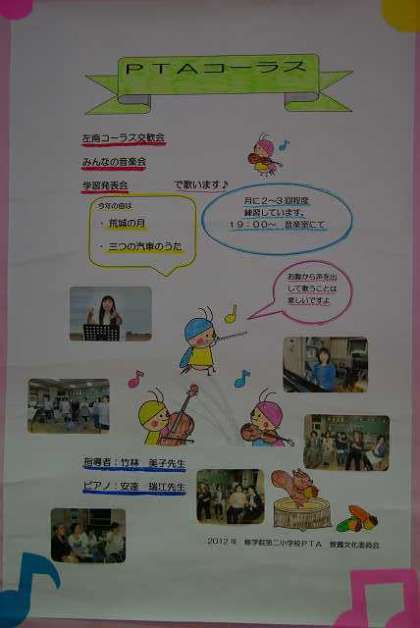 PTAコーラス
左南コーラス交歓会
みんなの音楽会
学習発表会　で歌います♪
今年の曲は
・荒城の月
・三つの汽車のうた
月に2〜3回程度
練習しています。
19:00〜　音楽室にて
お腹から声を出
して歌うことは
楽しいですよ
指導者：竹林　美子先生
ピアノ：安達　瑞江先生
2012年　修学院第二小学校PTA　教養文化委員会